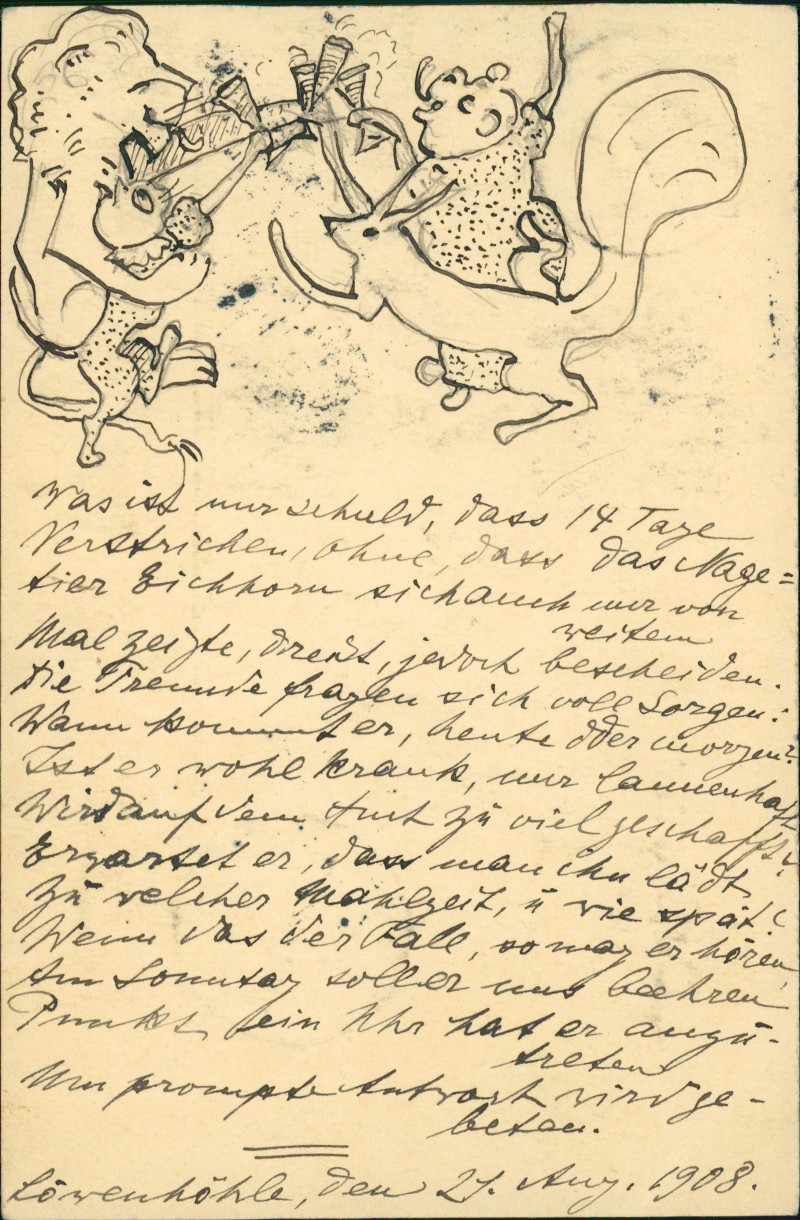 Was ist nur schuld, dass 14 Tage
Verstrichen, ohne, dass das Nage=
tier Eichhorn sich auch nur von
weitem
Mal zeigte, dreist, jedoch bescheiden.
Die Freunde fragen sich voll Sorgen:
Wann kommt er, heute oder morgen?
Ist er wohl krank, nur launenhaft
Wird auf dem Amt zu viel geschafft?
Erwartet er, dass man ihn lädt,
Zu welcher Mahlzeit, u wie spät?
Wenn das der Fall, so mag er hören,
Am Sonntag soll er uns beehren
Punkt ein Uhr hat er anzu-
treten
Um prompte Antwort wird ge-
beten.
Löwenhöhle, den 27. Aug. 1908.